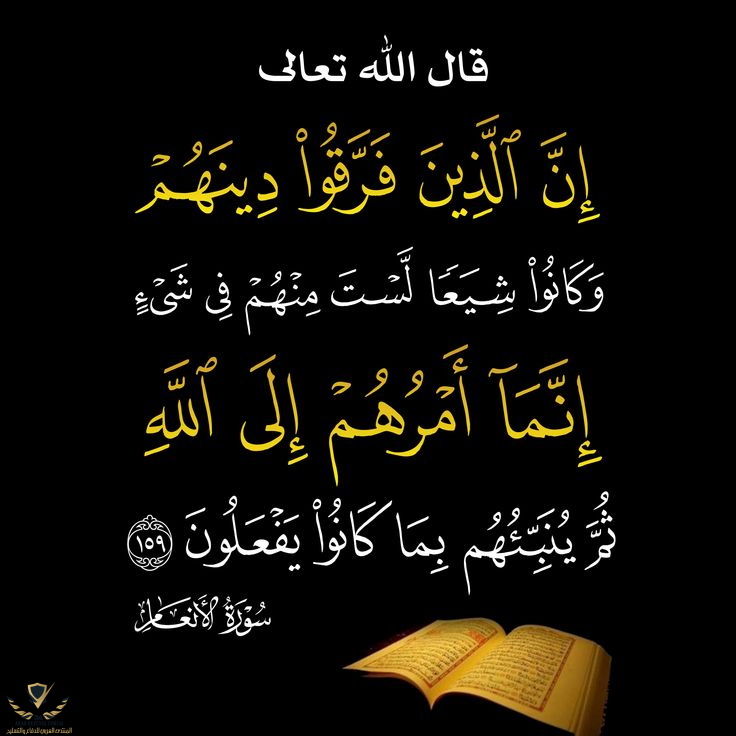 قال الله تعالى
إِنَّ ٱلَّذِينَ فَرَّقُوا۟ دِينَهُمْ
وَكَانُوا۟ شِيَعًا لَّسْتَ مِنْهُمْ فِى شَىْءٍ
إِنَّمَآ أَمْرُهُمْ إِلَى ٱللَّهِ
ثُمَّ يُنَبِّئُهُم بِمَا كَانُوا۟ يَفْعَلُونَ ١٥٩
سُورَةُ الأَنعَامِ
المنتدى العربي للدفاع والتسليح